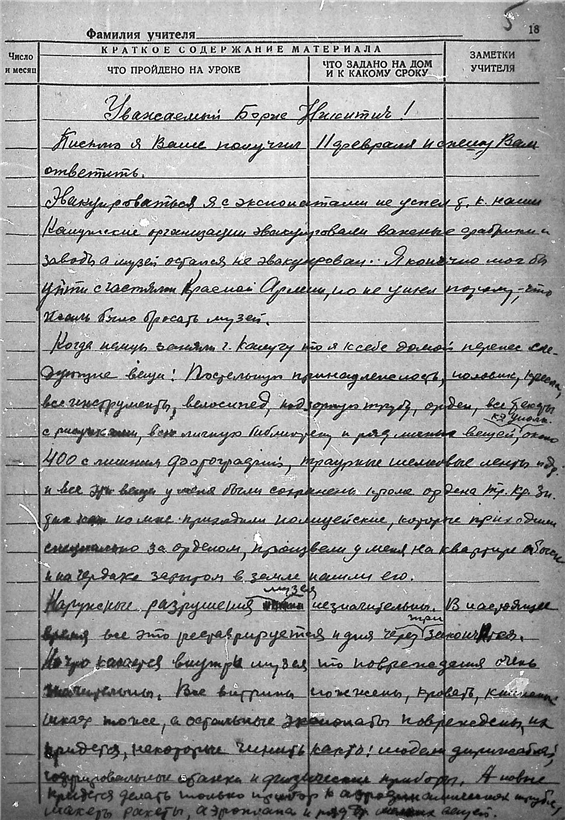 5
18
Фамилия учителя
КРАТКОЕ СОДЕРЖАНИЕ МАТЕРИАЛА
Число и месяц
ЧТО ПРОЙДЕНО НА УРОКЕ
ЧТО ЗАДАНО НА ДОМ И К КАКОМУ СРОКУ
ЗАМЕТКИ УЧИТЕЛЯ
Уважаемый Борис Никитич!
Письмо я Ваше получил 11 февраля и спешу Вам
ответить.
Эвакуироваться я с экспонатами не успел т.к. наши
Калужские организации эвакуировали важные фабрики и
заводы а музей остался не эвакуирован. Я конечно мог бы
уйти с частями Красной Армии, но не ушел потому, что
жаль было бросать музей.
Когда немцы заняли г. Калугу то я к себе домой перенес сле-
дующие вещи: Постельную принадлежность, половик, кресла,
все инструменты, велосипед, подзорную трубу, орден, все
с рисунками, всю личную библиотеку и ряд вещей, около
400 с лишним фотографий, траурные шелковые ленты и др.
и все эти вещи у меня были сохранены кроме ордена Тр. Кр. Зн.
так как ко мне приходили полицейские, которые приходили
специально за орденом, произвели у меня на квартире обыск
и на чердаке зарытом в земле нашли его.
Наружные разрушения музея незначительны. В настоящее
время все это реставрируется и дня через три закончится.
Но что кажется внутри музея то повреждения очень
значительны. Все витрины пожжены, кровать, книжный
шкаф тоже, а остальные экспонаты повреждены, их
придется, некоторые чинить как то: модели дирижаблей,
станки и физические приборы. А новые
придется делать только к аэродинамической трубе,
макеты ракеты, аэроплана и ряд др. вещей.